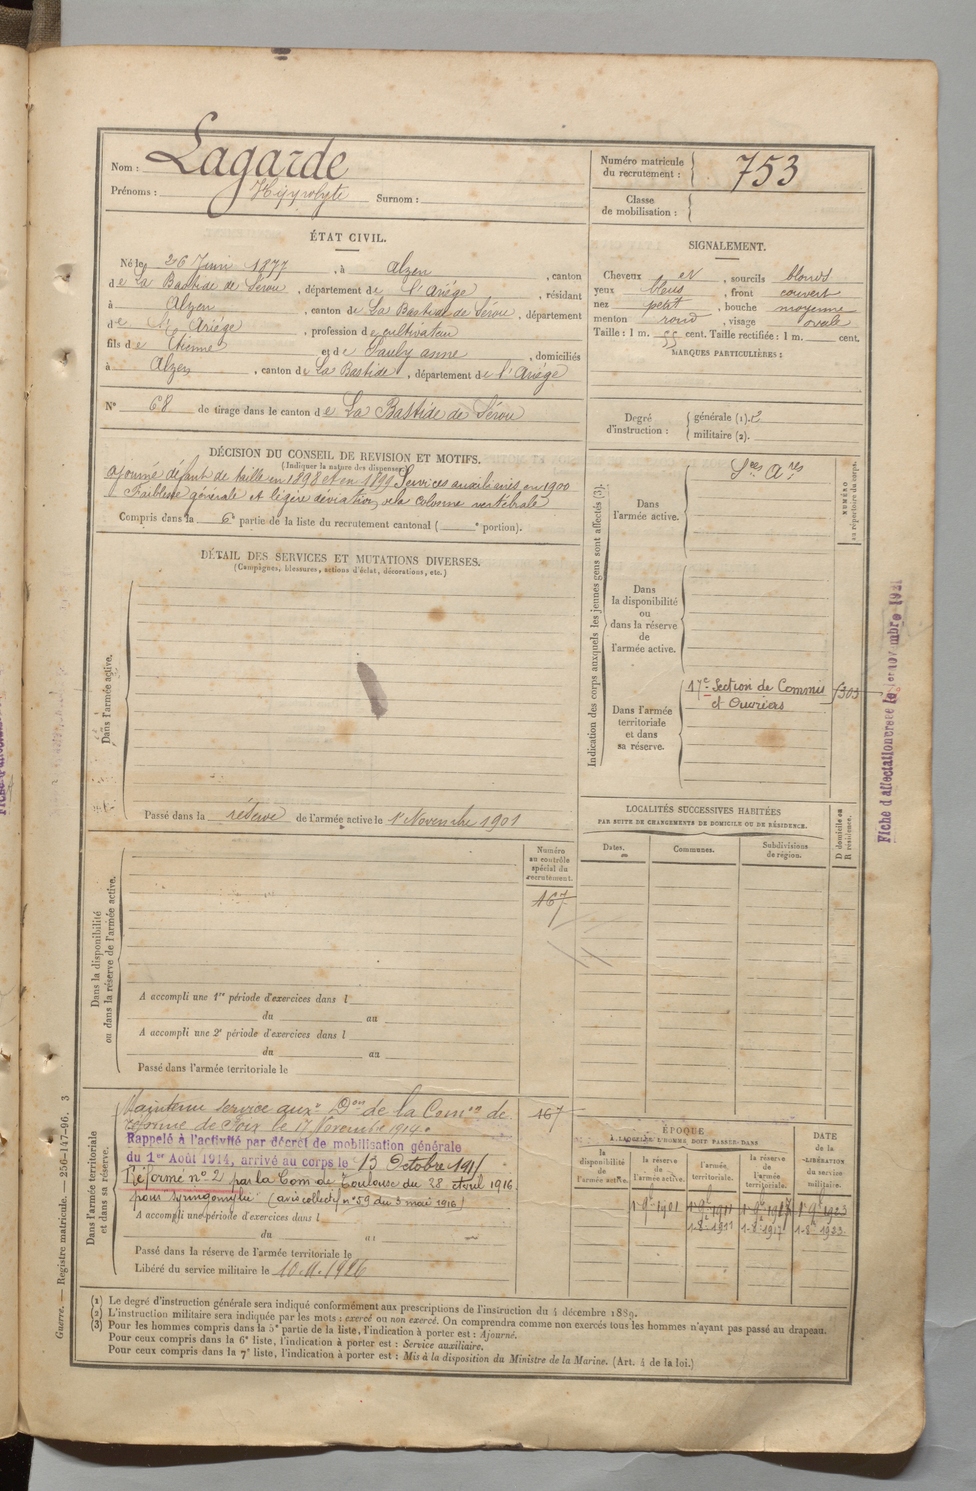 Nom : Lagarde
Prénoms : Hippolyte Surnom :
Numéro matricule du recrutement : 753
Classe de mobilisation :
ÉTAT CIVIL.
Né le 26 Juin 1877, à Alzen, canton
de La Bastide de Sérou, département de l'Ariège, résidant
à Alzen, canton de La Bastide de Sérou, département
de l'Ariège, profession de cultivateur
fils de Etienne et de Sauby anne, domiciliés
à Alzen, canton de La Bastide, département de l'Ariège
N° 68 de tirage dans le canton de La Bastide de Sérou
SIGNALEMENT.
Cheveux et, sourcils blonds
yeux bleus, front couvert
nez petit, bouche moyenne
menton rond, visage ovale
Taille : 1 m. 55 cent. Taille rectifiée : 1 m. cent.
MARQUES PARTICULIÈRES :
Degré d'instruction : générale (1). 2
militaire (2).
DÉCISION DU CONSEIL DE REVISION ET MOTIFS.
(Indiquer la nature des dispenses)
ajourné défaut de taille en 1898 et en 1899 Services auxiliaires en 1900
Faiblesse générale et légère déviation de la colonne vertébrale
Compris dans la 6e partie de la liste du recrutement cantonal ( e portion).
DÉTAIL DES SERVICES ET MUTATIONS DIVERSES.
(Campagnes, blessures, actions d'éclat, décorations, etc.)
Dans l'armée active.
Passé dans la réserve de l'armée active le 1er Novembre 1901
Indication des corps auxquels les jeunes gens sont affectés (3).
NUMÉRO au répertoire du corps.
Dans l'armée active.
Sces Aires
Dans la disponibilité ou dans la réserve de l'armée active.
Dans l'armée territoriale et dans sa réserve.
17e Section de Commis
et Ouvriers
Fiche d'affectation
LOCALITÉS SUCCESSIVES HABITÉES
PAR SUITE DE CHANGEMENTS DE DOMICILE OU DE RÉSIDENCE.
Dates. Communes. Subdivisions de région.
D domicile ou R résidence.
Dans la disponibilité ou dans la réserve de l'armée active.
Numéro au contrôle spécial du recrutement.
167
A accompli une 1re période d'exercices dans l
du au
A accompli une 2e période d'exercices dans l
du au
Passé dans l'armée territoriale le
Dans l'armée territoriale et dans sa réserve.
Maintenu service auxre Don de la Comon de
réforme de Foix le 17 Novembre 1914.
167
Rappelé à l'activité par décret de mobilisation générale
du 1er Août 1914, arrivé au corps le 13 Octobre 1915
Réformé n° 2 par la Com de Toulouse du 28 avril 1916
pour syringomylie (avis collectif n° 59 du 3 mai 1916)
A accompli une période d'exercices dans l
du au
Passé dans la réserve de l'armée territoriale le
Libéré du service militaire le 10.11.1926
ÉPOQUE
À LAQUELLE L'HOMME DOIT PASSER DANS
DATE de la LIBÉRATION du service militaire.
la disponibilité de l'armée active. la réserve de l'armée active. l'armée territoriale. la réserve de l'armée territoriale.
1-9bre 1901 1-9bre 1911 1-9bre 1917 1-9bre 1923
1-8bre 1911 1-8bre 1917 1-8bre 1923
(1) Le degré d'instruction générale sera indiqué conformément aux prescriptions de l'instruction du 4 décembre 1889.
(2) L'instruction militaire sera indiquée par les mots : exercé ou non exercé. On comprendra comme non exercés tous les hommes n'ayant pas passé au drapeau.
(3) Pour les hommes compris dans la 5e partie de la liste, l'indication à porter est : Ajourné.
Pour ceux compris dans la 6e liste, l'indication à porter est : Service auxiliaire.
Pour ceux compris dans la 7e liste, l'indication à porter est : Mis à la disposition du Ministre de la Marine. (Art. 4 de la loi.)
Guerre. — Registre matricule. — 256-147-96. 3